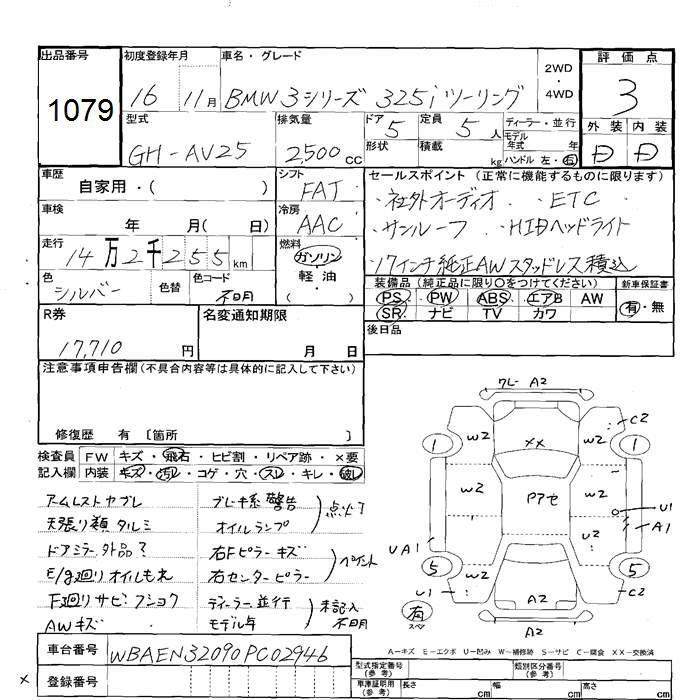 出品番号 初度登録年月 車名・グレード 2WD ・ 4WD 評価点
1079 16 11月 BMW 3シリーズ 325i ツーリング 3
型式 排気量 ドア 定員 ディーラー・並行 外装 内装
GH-AV25 2,500cc 5 5人 モデル年式 年 D D
形状 積載 kg ハンドル 左・右
車歴 シフト セールスポイント (正常に機能するものに限ります)
自家用・( ) FAT ・社外オーディオ ・ETC
車検 冷房 ・サンルーフ ・HIDヘッドライト
年 月( 日) AAC ・17インチ純正AWスタッドレス積込
走行 14万2千255km 燃料 ガソリン
軽・油
( )
色 色替 色コード 装備品 (純正品に限り○をつけてください) 新車保証書
シルバー 不明 PS・PW ABS エアB AW 有・無
SR ナビ TV カワ
R券 名変通知期限 後日品
17,710円 月 日
注意事項申告欄(不具合内容等は具体的に記入して下さい)
修復歴 有 〔箇所 〕
検査員 FW キズ・飛石・ヒビ割・リペア跡・×要
記入欄 内装 キズ・汚レ・コゲ・穴・スレ・キレ・破レ
アームレストヤブレ ブレーキ系警告 点灯
天張り類タルミ オイルランプ
ドアミラー外品? 右Fピラーキズ ペイント
E/g廻りオイルもれ 右センターピラー
F廻りサビ・フショク ディーラー並行 未記入
AWキズ モデル年 不明
車台番号 WBAEN32090PC02946
登録番号
×
クレー A2
C2
1 W2 XX W2 1
W2 Pアセ W2
U1
A1
UA1 W2 U2
5 5
U1 A2 C2
有
スペア
A2
A-キズ E-エクボ U-凹み W-補修跡 S-サビ C-腐食 XX-交換済
型式指定番号(参考) 類別区分番号(参考)
車庫証明用(参考) 長さ cm 幅 cm 高さ cm